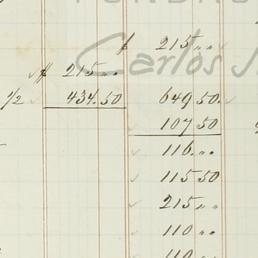 $ 215 " "
Carlos
$ 215 " "
1/2 434.50 649 50
107 50
116 " "
115 50
215 " "
110 " "
110 " "